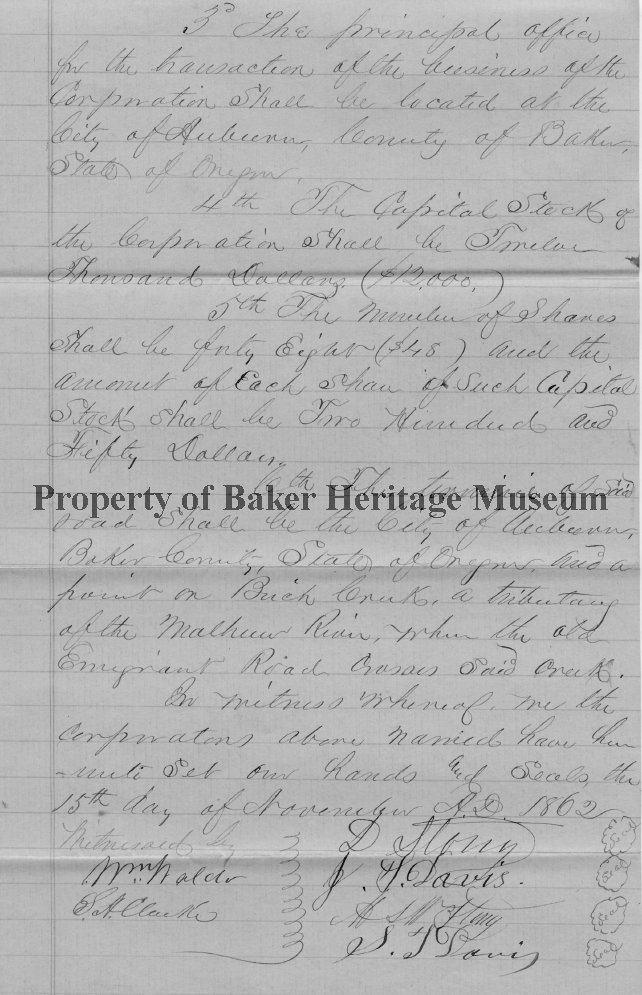 3d The principal office
for the transaction of the business of the
Corporation Shall be located at the
City of Auburn, County of Baker,
State of Oregon.
4th The Capital Stock of
the Corporation Shall be Twelve
Thousand Dollars, ($12,000,)
5th The Number of Shares
Shall be forty Eight ($48) and the
amount of Each Share of Such Capital
Stock Shall be Two Hundred and
Fifty Dollars,
6th The termini of Said
Property of Baker Heritage Museum
road Shall be the City of Auburn,
Baker County, State of Oregon, and a
point on Birch Creek, a tributary
of the Malheur River, when the old
Emigrant Road Crosses Said Creek.
In witness whereof, we the
Corporators above Named have here
-unto Set our hands and Seals the
15th day of November A.D. 1862
Witnessed by
D Stong Seal
Wm Waldo J. F. Davis. Seal
S. A. Clarke Stong Seal
S. F Davis Seal